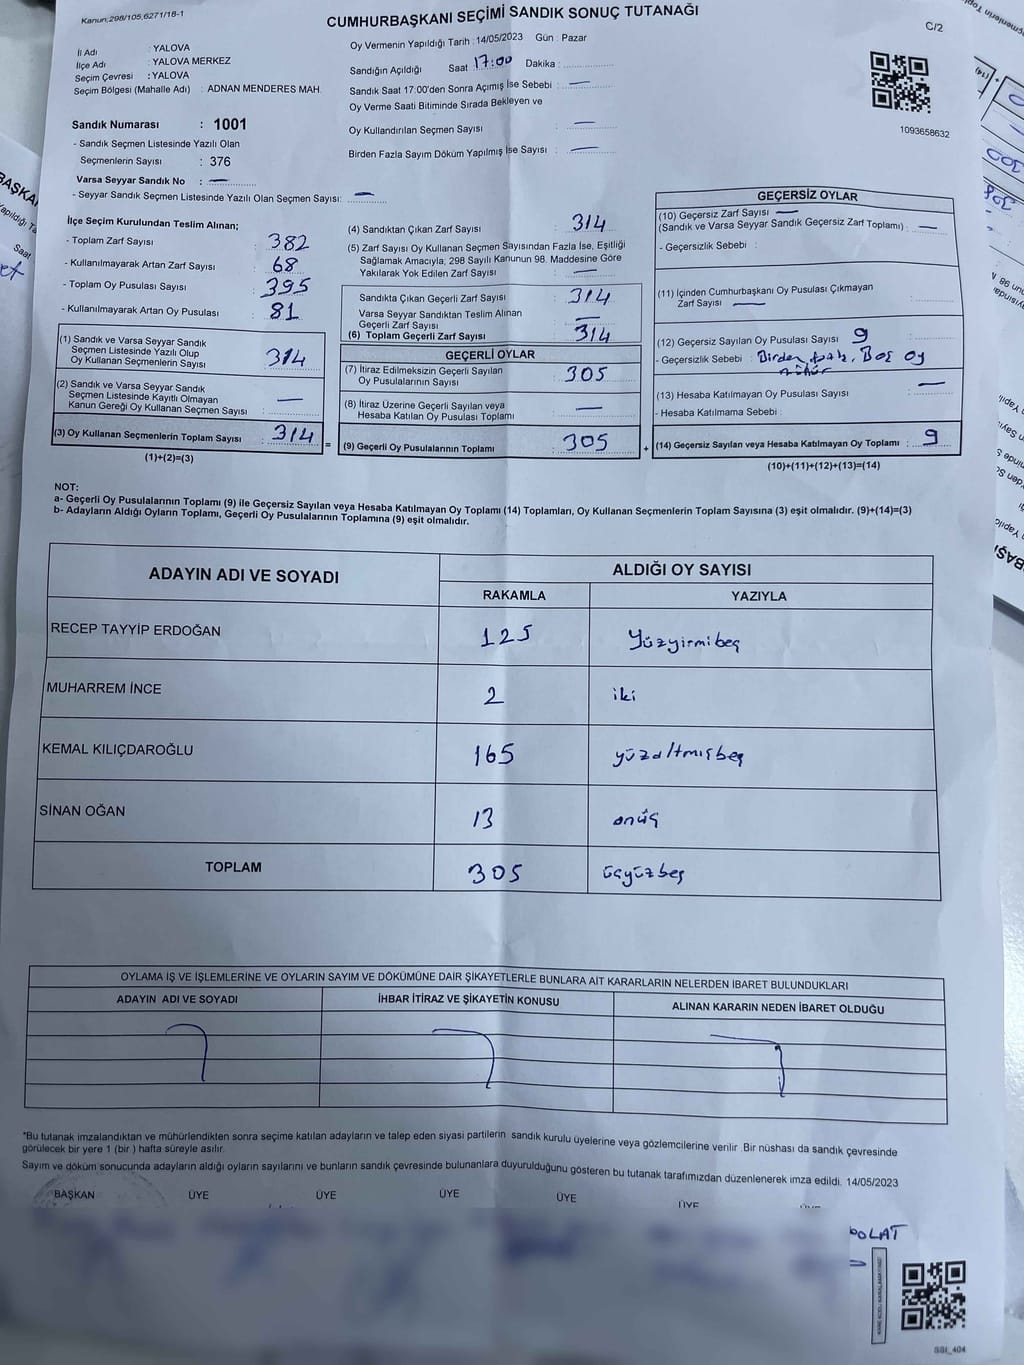 Kanun;298/105,6271/18-1
CUMHURBAŞKANI SEÇİMİ SANDIK SONUÇ TUTANAĞI
C/2
İl Adı : YALOVA
İlçe Adı : YALOVA MERKEZ
Seçim Çevresi : YALOVA
Seçim Bölgesi (Mahalle Adı) : ADNAN MENDERES MAH.
Oy Vermenin Yapıldığı Tarih : 14/05/2023 Gün : Pazar
Sandığın Açıldığı Saat 17:00 Dakika :
Sandık Saat 17:00'den Sonra Açımış İse Sebebi : —
Oy Verme Saati Bitiminde Sırada Bekleyen ve
Oy Kullandırılan Seçmen Sayısı : —
Birden Fazla Sayım Döküm Yapılmış İse Sayısı : —
1093658632
Sandık Numarası : 1001
- Sandık Seçmen Listesinde Yazılı Olan
Seçmenlerin Sayısı : 376
Varsa Seyyar Sandık No : —
- Seyyar Sandık Seçmen Listesinde Yazılı Olan Seçmen Sayısı: —
İlçe Seçim Kurulundan Teslim Alınan;
- Toplam Zarf Sayısı : 382
- Kullanılmayarak Artan Zarf Sayısı : 68
- Toplam Oy Pusulası Sayısı : 395
- Kullanılmayarak Artan Oy Pusulası : 81
(1) Sandık ve Varsa Seyyar Sandık
Seçmen Listesinde Yazılı Olup
Oy Kullanan Seçmenlerin Sayısı : 314
(2) Sandık ve Varsa Seyyar Sandık
Seçmen Listesinde Kayıtlı Olmayan
Kanun Gereği Oy Kullanan Seçmen Sayısı : —
(3) Oy Kullanan Seçmenlerin Toplam Sayısı : 314
(1)+(2)=(3)
=
(4) Sandıktan Çıkan Zarf Sayısı : 314
(5) Zarf Sayısı Oy Kullanan Seçmen Sayısından Fazla İse, Eşitliği
Sağlamak Amacıyla; 298 Sayılı Kanunun 98. Maddesine Göre
Yakılarak Yok Edilen Zarf Sayısı : —
Sandıkta Çıkan Geçerli Zarf Sayısı : 314
Varsa Seyyar Sandıktan Teslim Alınan
Geçerli Zarf Sayısı : —
(6) Toplam Geçerli Zarf Sayısı : 314
GEÇERLİ OYLAR
(7) İtiraz Edilmeksizin Geçerli Sayılan
Oy Pusulalarının Sayısı : 305
(8) İtiraz Üzerine Geçerli Sayılan veya
Hesaba Katılan Oy Pusulası Toplamı : —
(9) Geçerli Oy Pusulalarının Toplamı : 305
+
GEÇERSİZ OYLAR
(10) Geçersiz Zarf Sayısı —
(Sandık ve Varsa Seyyar Sandık Geçersiz Zarf Toplamı) : —
- Geçersizlik Sebebi :
(11) İçinden Cumhurbaşkanı Oy Pusulası Çıkmayan
Zarf Sayısı — :
(12) Geçersiz Sayılan Oy Pusulası Sayısı : 9
- Geçersizlik Sebebi : Birden fazla, Boş oy
mühür
(13) Hesaba Katılmayan Oy Pusulası Sayısı : —
- Hesaba Katılmama Sebebi :
(14) Geçersiz Sayılan veya Hesaba Katılmayan Oy Toplamı : 9
(10)+(11)+(12)+(13)=(14)
NOT:
a- Geçerli Oy Pusulalarının Toplamı (9) ile Geçersiz Sayılan veya Hesaba Katılmayan Oy Toplamı (14) Toplamları, Oy Kullanan Seçmenlerin Toplam Sayısına (3) eşit olmalıdır. (9)+(14)=(3)
b- Adayların Aldığı Oyların Toplamı, Geçerli Oy Pusulalarının Toplamına (9) eşit olmalıdır.
ADAYIN ADI VE SOYADI
ALDIĞI OY SAYISI
RAKAMLA YAZIYLA
RECEP TAYYİP ERDOĞAN 125 Yüzyirmibeş
MUHARREM İNCE 2 iki
KEMAL KILIÇDAROĞLU 165 yüzaltmışbeş
SİNAN OĞAN 13 onüç
TOPLAM 305 üçyüzbeş
OYLAMA İŞ VE İŞLEMLERİNE VE OYLARIN SAYIM VE DÖKÜMÜNE DAİR ŞİKAYETLERLE BUNLARA AİT KARARLARIN NELERDEN İBARET BULUNDUKLARI
ADAYIN ADI VE SOYADI İHBAR İTİRAZ VE ŞİKAYETİN KONUSU ALINAN KARARIN NEDEN İBARET OLDUĞU
*Bu tutanak imzalandıktan ve mühürlendikten sonra seçime katılan adayların ve talep eden siyasi partilerin sandık kurulu üyelerine veya gözlemcilerine verilir. Bir nüshası da sandık çevresinde
görülecek bir yere 1 (bir ) hafta süreyle asılır.
Sayım ve döküm sonucunda adayların aldığı oyların sayılarını ve bunların sandık çevresinde bulunanlara duyurulduğunu gösteren bu tutanak tarafımızdan düzenlenerek imza edildi. 14/05/2023
BAŞKAN ÜYE ÜYE ÜYE ÜYE ÜYE
POLAT
SSI_404